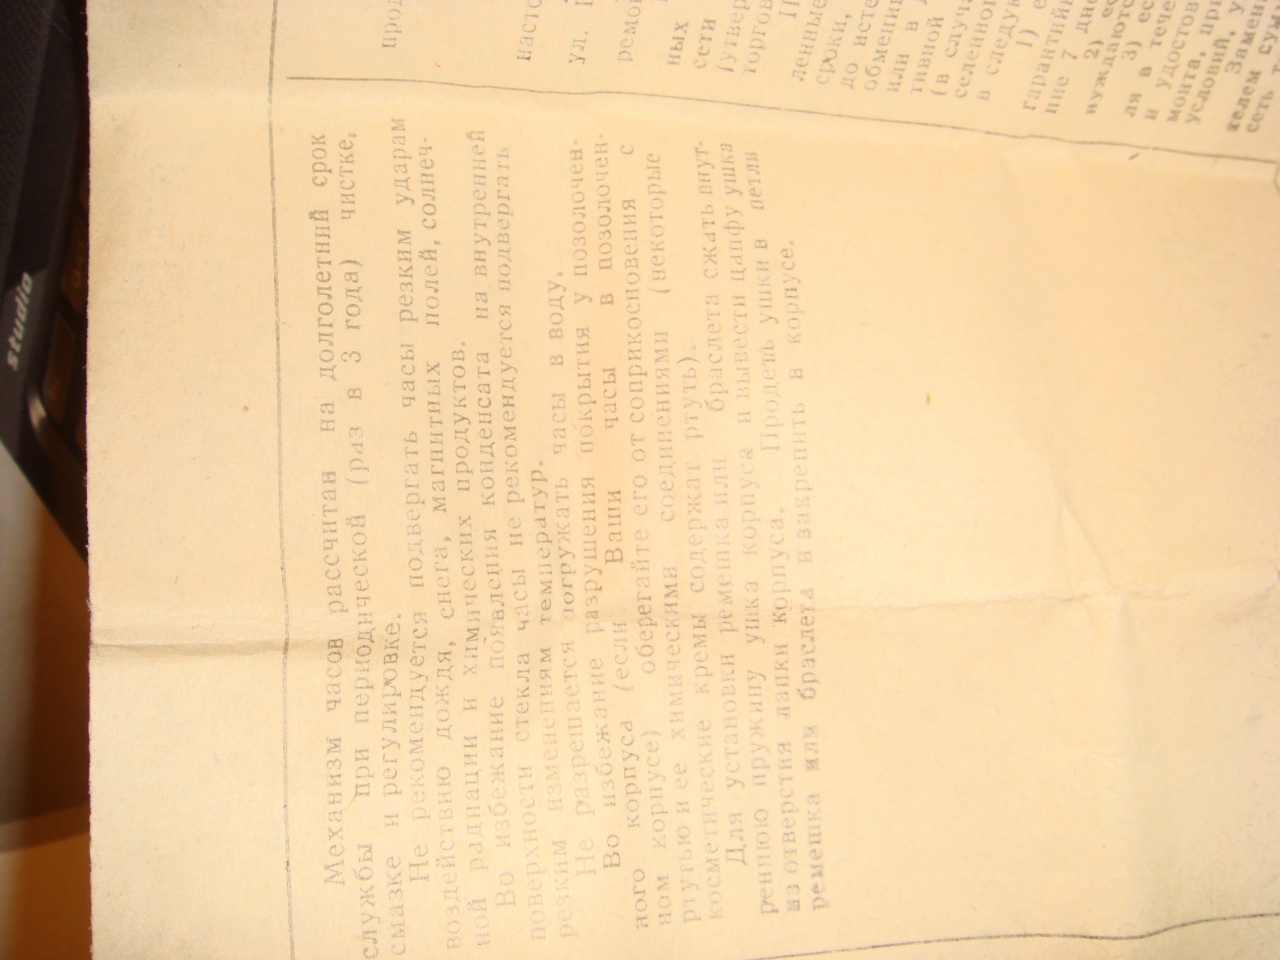 Механизм часов рассчитан на долголетний срок
службы при периодической (раз в 3 года) чистке,
смазке и регулировке.
Не рекомендуется подвергать часы резким ударам
воздействию дождя, снега, магнитных полей, солнеч-
ной радиации и химических продуктов.
Во избежание появления конденсата на внутренней
поверхности стекла часы не рекомендуется подвергать
резким изменениям температур.
Не разрешается погружать часы в воду.
Во избежание разрушения покрытия у позолочен-
ного корпуса (если Ваши часы в позолочен-
ном корпусе) оберегайте его от соприкосновения с
ртутью и ее химическими соединениями (некоторые
косметические кремы содержат ртуть).
Для установки ремешка или браслета сжать внут-
реннюю пружину ушка корпуса и вывести цапфу ушка
из отверстия лапки корпуса. Продеть ушки в петли
ремешка или браслета и закрепить в корпусе.
прод
насто
ул.
ремон
ных
сети
(утвер
торгов
ленные
сроки,
до исте
обмени
или в
тивной
(в случа
селенног
в следую
1)
гарантийн
ние 7 дне
2) ес
нуждаютс
3) ес
ля в тече
и удостов
монта, при
условий, у
Замена
телем сум
сеть т
studio